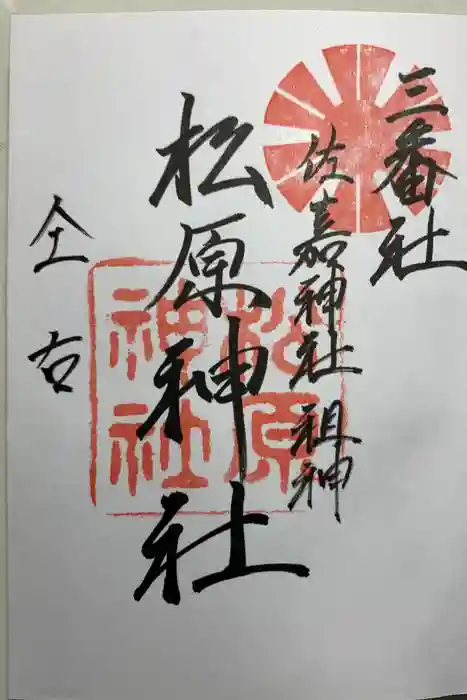 三番社
佐嘉神社 祖神
松原神社
松原神社